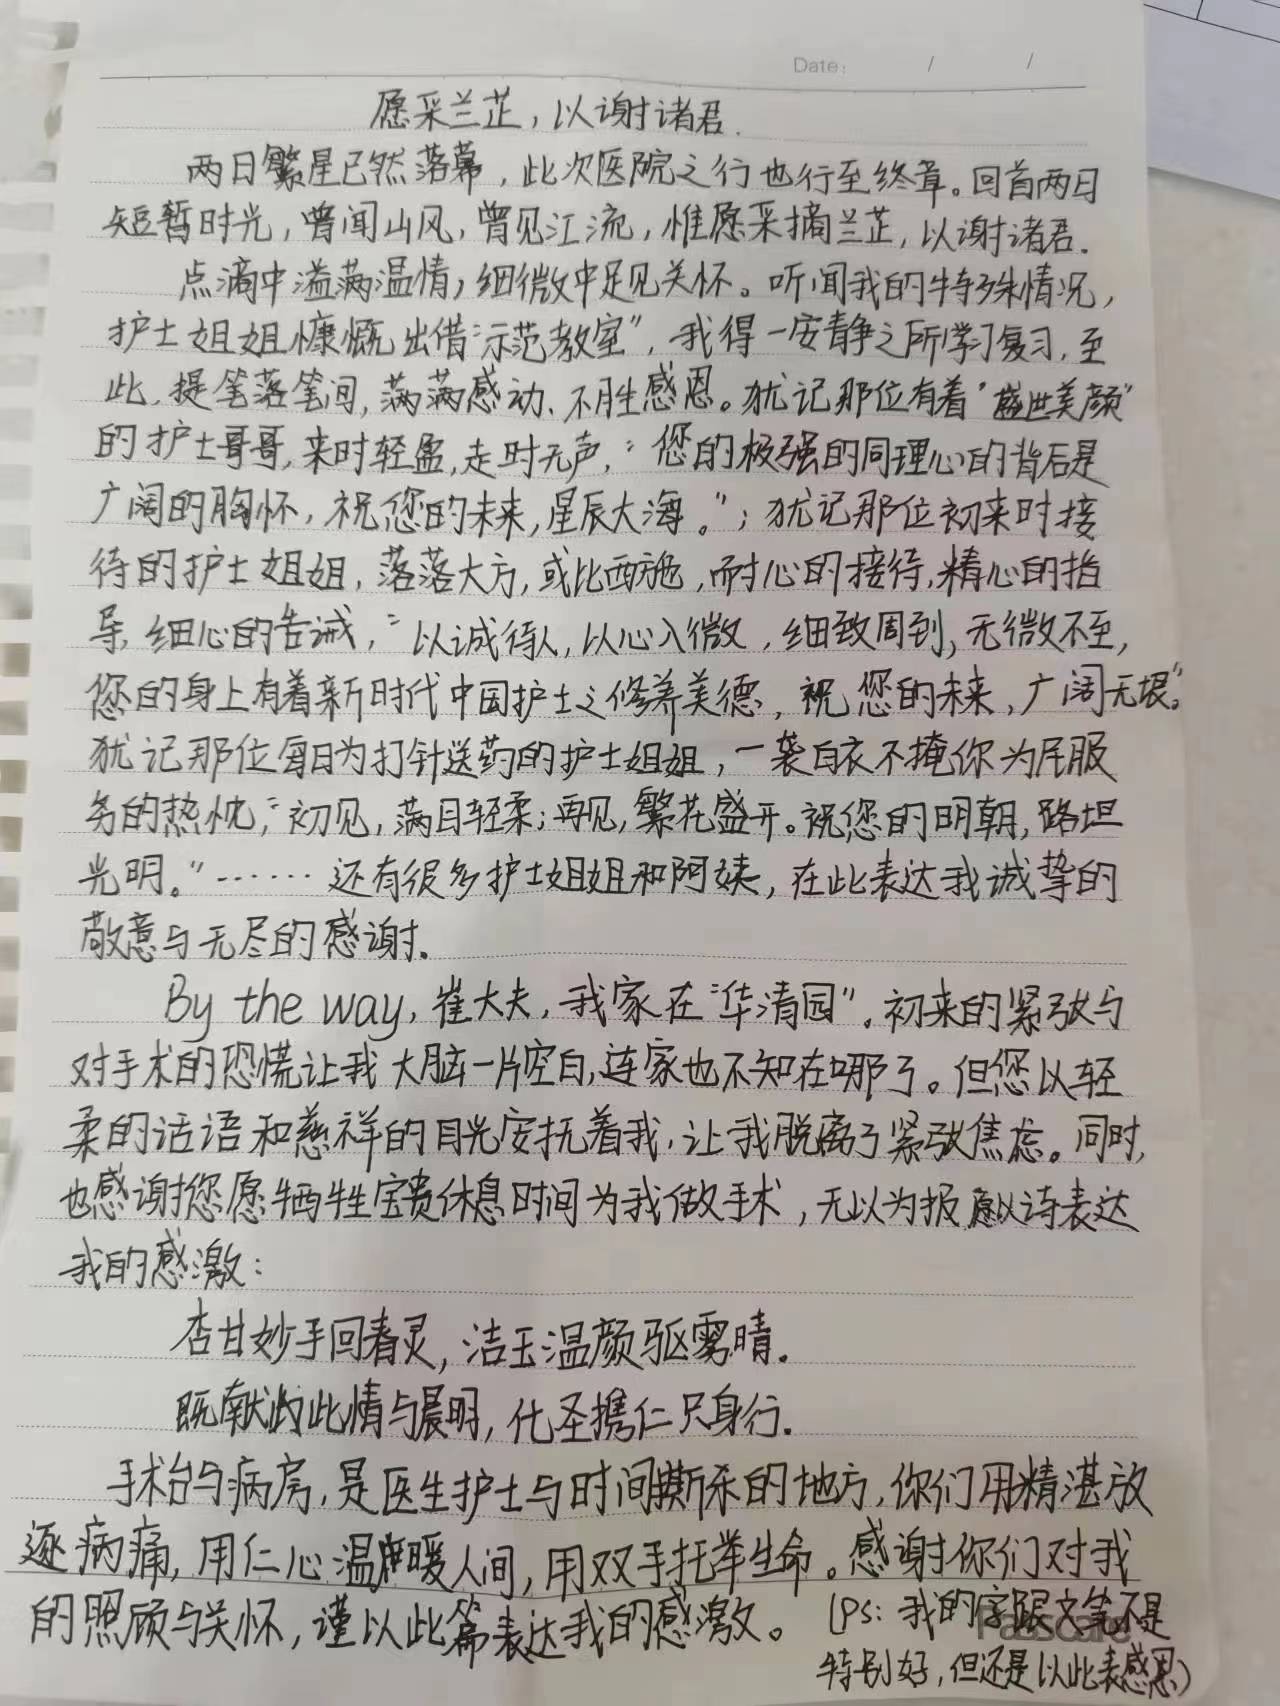 Date: / /
愿采兰芷，以谢诸君.
两日繁星已然落幕，此次医院之行也行至终章。回首两日
短暂时光，曾闻山风，曾见江流，惟愿采摘兰芷，以谢诸君.
点滴中溢满温情，细微中足见关怀。听闻我的特殊情况，
护士姐姐慷慨出借“示范教室”，我得一安静之所学习复习，至
此，提笔落笔间，满满感动、不胜感恩。犹记那位有着“盛世美颜”
的护士哥哥，来时轻盈，走时无声，“您的极强的同理心的背后是
广阔的胸怀，祝您的未来，星辰大海。”；犹记那位初来时接
待的护士姐姐，落落大方，或比西施，耐心的接待，精心的指
导，细心的告诫，“以诚待人，以心入微，细致周到，无微不至，
您的身上有着新时代中国护士之修养美德，祝您的未来，广阔无垠”。
犹记那位每日为打针送药的护士姐姐，一袭白衣不掩你为民服
务的热忱，“初见，满目轻柔；再见，繁花盛开。祝您的明朝，路坦
光明。”……还有很多护士姐姐和阿姨，在此表达我诚挚的
敬意与无尽的感谢.
By the way，崔大夫，我家在“华清园”。初来的紧张与
对手术的恐慌让我大脑一片空白，连家也不知在哪了。但您以轻
柔的话语和慈祥的目光安抚着我，让我脱离了紧张焦虑。同时，
也感谢您愿牺牲宝贵休息时间为我做手术，无以为报，愿以诗表达
我的感激：
杏甘妙手回春灵，洁玉温颜驱雾晴.
既献此情与晨明，化圣携仁只身行.
手术台与病房，是医生护士与时间厮杀的地方，你们用精湛放
逐病痛，用仁心温暖人间，用双手托举生命。感谢你们对我
的照顾与关怀，谨以此篇表达我的感激。（PS：我的字跟文笔不是
特别好，但还是以此表感恩）